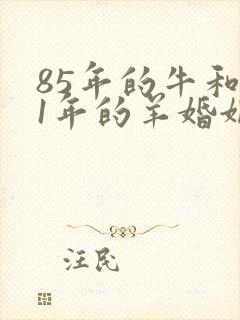 85年的牛和
1年的羊婚姻
注民